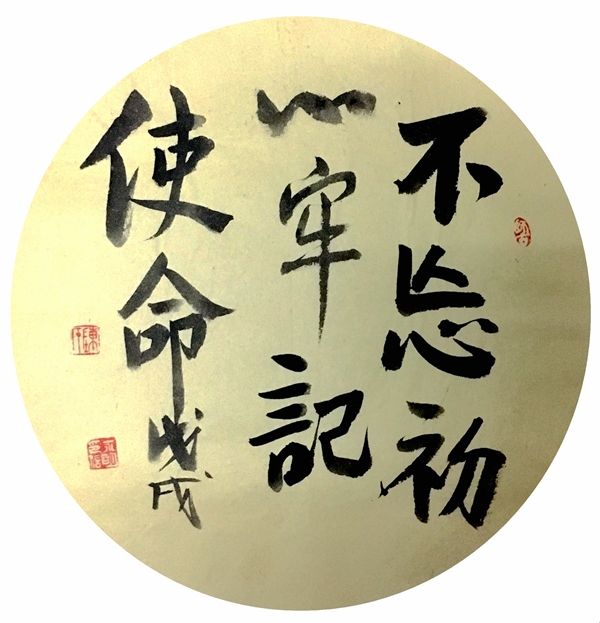 不忘初
心牢記
使命戊戌